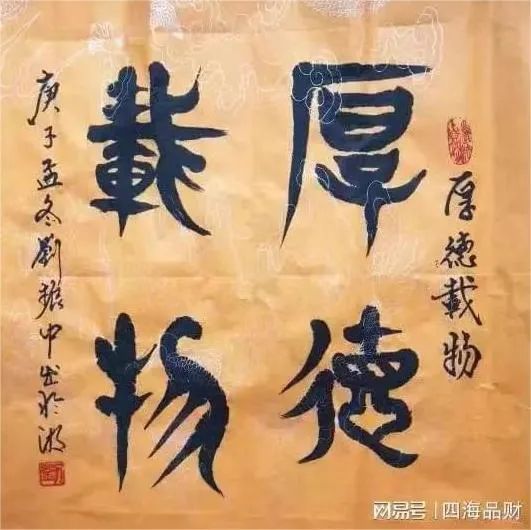 厚德
載物
厚德載物
庚子孟冬劉振中书於湖
网易号 | 四海品财